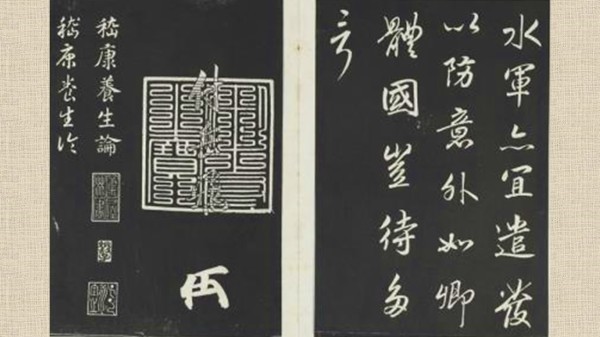 水軍亦宜遣發
以防意外如卿
體國豈待多
言
嵇康養生論
嵇康养生论